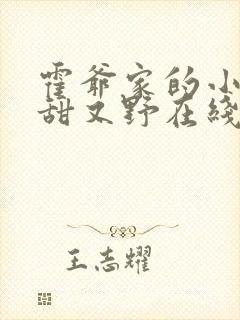 霍爷家的小
甜又野在线
王志耀